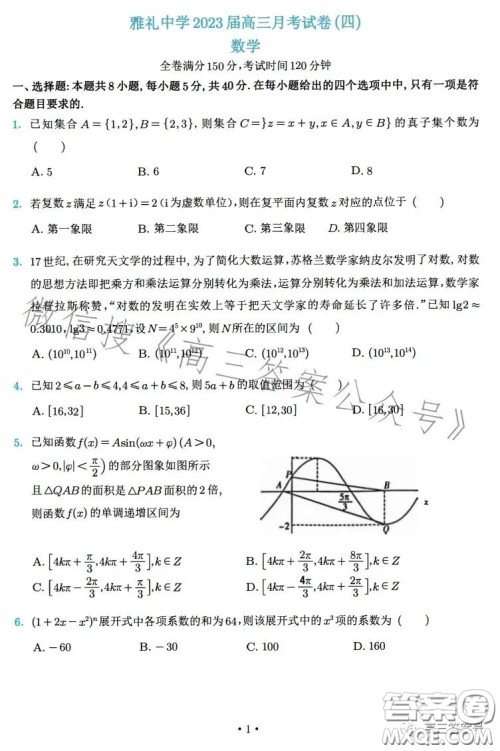 雅礼中学2023届高三月考试卷(四)
数学
全卷满分150分,考试时间120分钟
一、选择题:本题共8小题,每小题5分,共40分.在每小题给出的四个选项中中,只有一项是符
合题目要求的.
1. 已知集合A={1,2},B={2,3},则集合C=}z=x+y,x∈A,y∈B}的真子集个数为
( )
A. 5 B. 6 C. 7 D. 8
2. 若复数z满足z(1+i)=2(i为虚数单位),则在复平面内复数z对应的点位于( )
A. 第一象限 B. 第二象限 C. 第三象限 D. 第四象限
3. 17世纪,在研究天文学的过程中,为了简化大数运算,苏格兰数学家纳皮尔发明了对数,对数
的思想方法即把乘方和乘法运算分别转化为乘法,运算分别转化为乘法和加法运算,数学家
拉普拉斯称赞,“对数的发明在实效上等于把天文学家的寿命延长了许多倍.”已知lg2≈
0.3010,lg3≈0.4771,设N=4⁵×9¹⁰,则N所在的区间为( )
A. (10¹⁰,10¹¹) B. (10¹¹,10¹²) C. (10¹²,10¹³) D. (10¹³,10¹⁴)
4. 已知2≤a-b≤4,4≤a+b≤8,则5a+b的取值范围为( )
A. [16,32] B. [15,36] C. [12,30] D. [16,30]
5. 已知函数f(x)=Asin(ωx+φ)(A>0,
ω>0,|φ|<π/2)的部分图象如图所示
且△QAB的面积是△PAB面积的2倍,
则函数f(x)的单调递增区间为
P
A
5π/3
B
x
-2
Q
A. [4kπ+π/3,4kπ+4π/3],k∈Z B. [4kπ+2π/3,4kπ+8π/3],k∈Z
C. [4kπ-2π/3,4kπ+π/3],k∈Z D. [4kπ-4π/3,4kπ+2π/3],k∈Z
6. (1+2x-x²)ⁿ展开式中各项系数的和为64,则该展开式中的x³项的系数为( )
A. -60 B. -30 C. 100 D. 160
• 1 •
微信搜《高三答案公众号》
答案圈
MXQE.COM